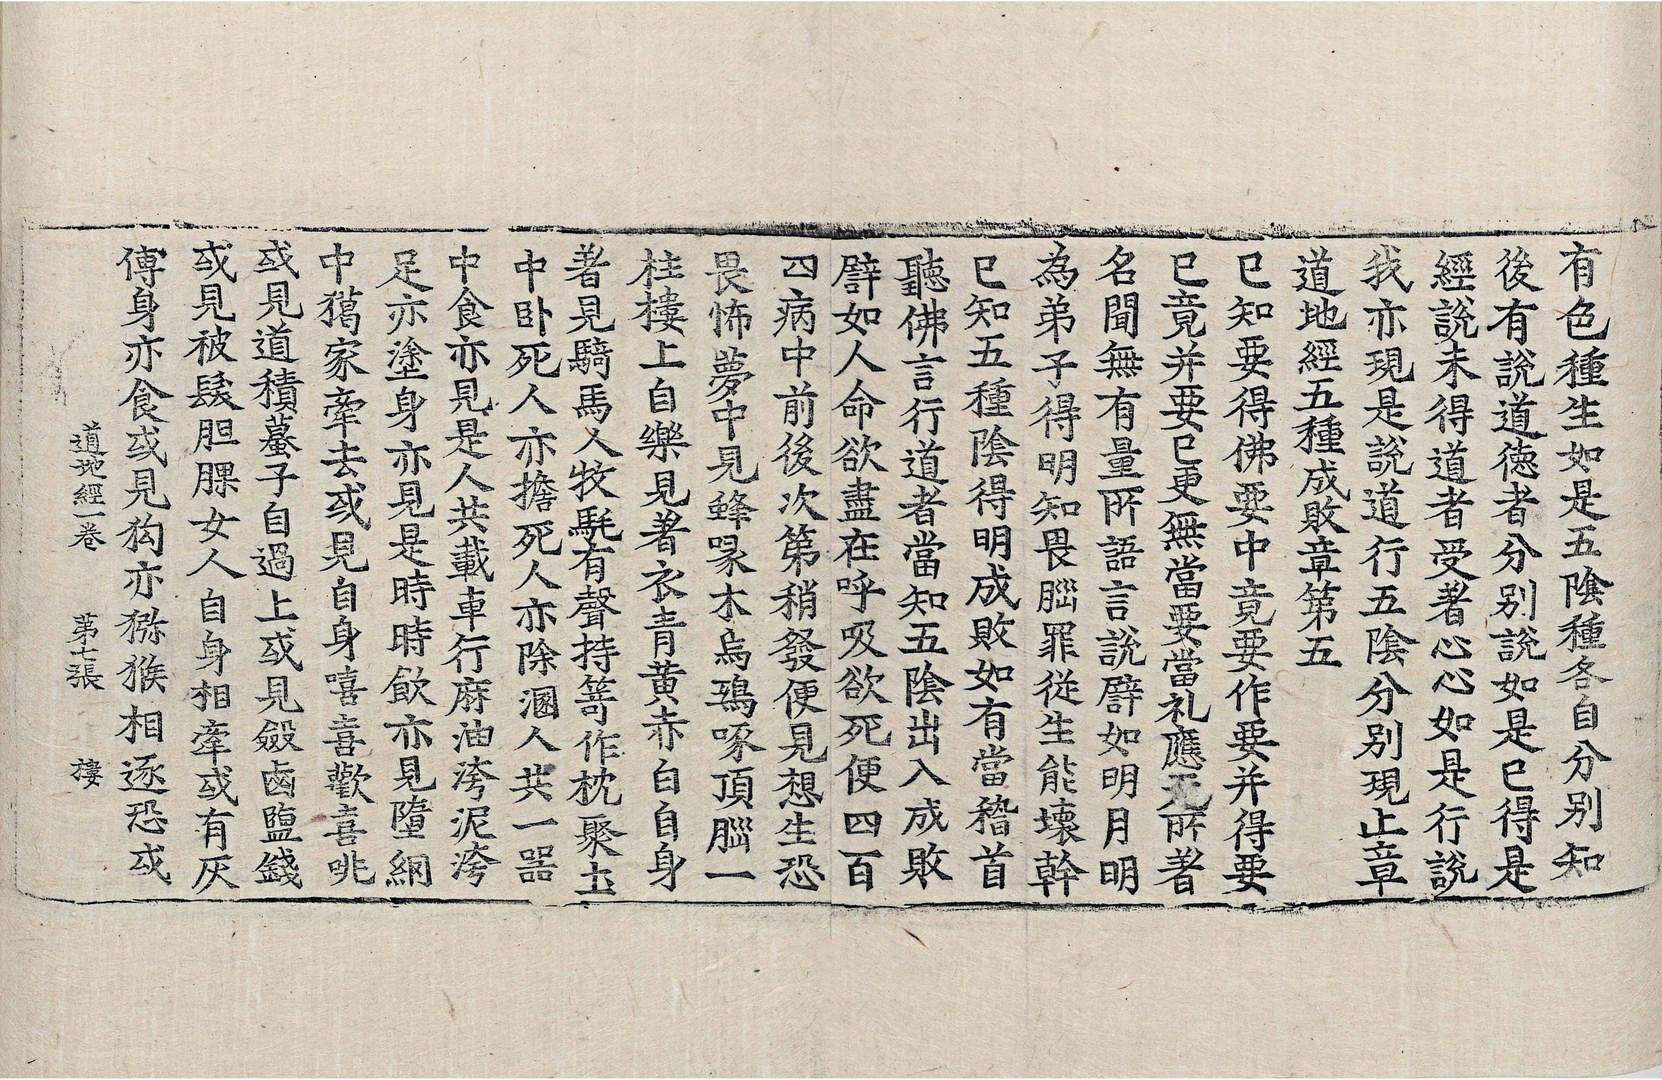 有色種生如是五陰種各自分別知
後有說道德者分別說如是已得是
經說未得道者受著心心如是行說
我亦現是說道行五陰分別現止章
道地經五種成敗章第五
已知要得佛要中竟要作要并得要
已竟并要要已更無當要當礼應无所著
名聞無有量所語言說譬如明月明
為弟子得明知畏𦝫罪從生能壞幹
已知五種陰得明成敗如有當稽首
聽佛言行道者當知五陰出入成敗
譬如人命欲盡在呼吸欲死便四百
四病中前後次第稍發便見想生恐
畏怖夢中見蜂喙木烏鵶啄頂腦一
柱樓上自樂見著衣青黃赤白自身
著見騎馬人牧髦有聲持笴作枕聚土
中卧死人亦擔死人亦除溷人共一器
中食亦見是人共載車行麻油洿泥洿
足亦塗身亦見是時時飲亦見墮網
中獦家牽去或見自身嘻喜歡喜咷
或見道積蟇子自過上或見斂鹵鹽錢
或見被髮胆臝女人自身相牽或有灰
傅身亦食或見狗亦猕猴相逐恐或
道地經一卷　第七張　樓